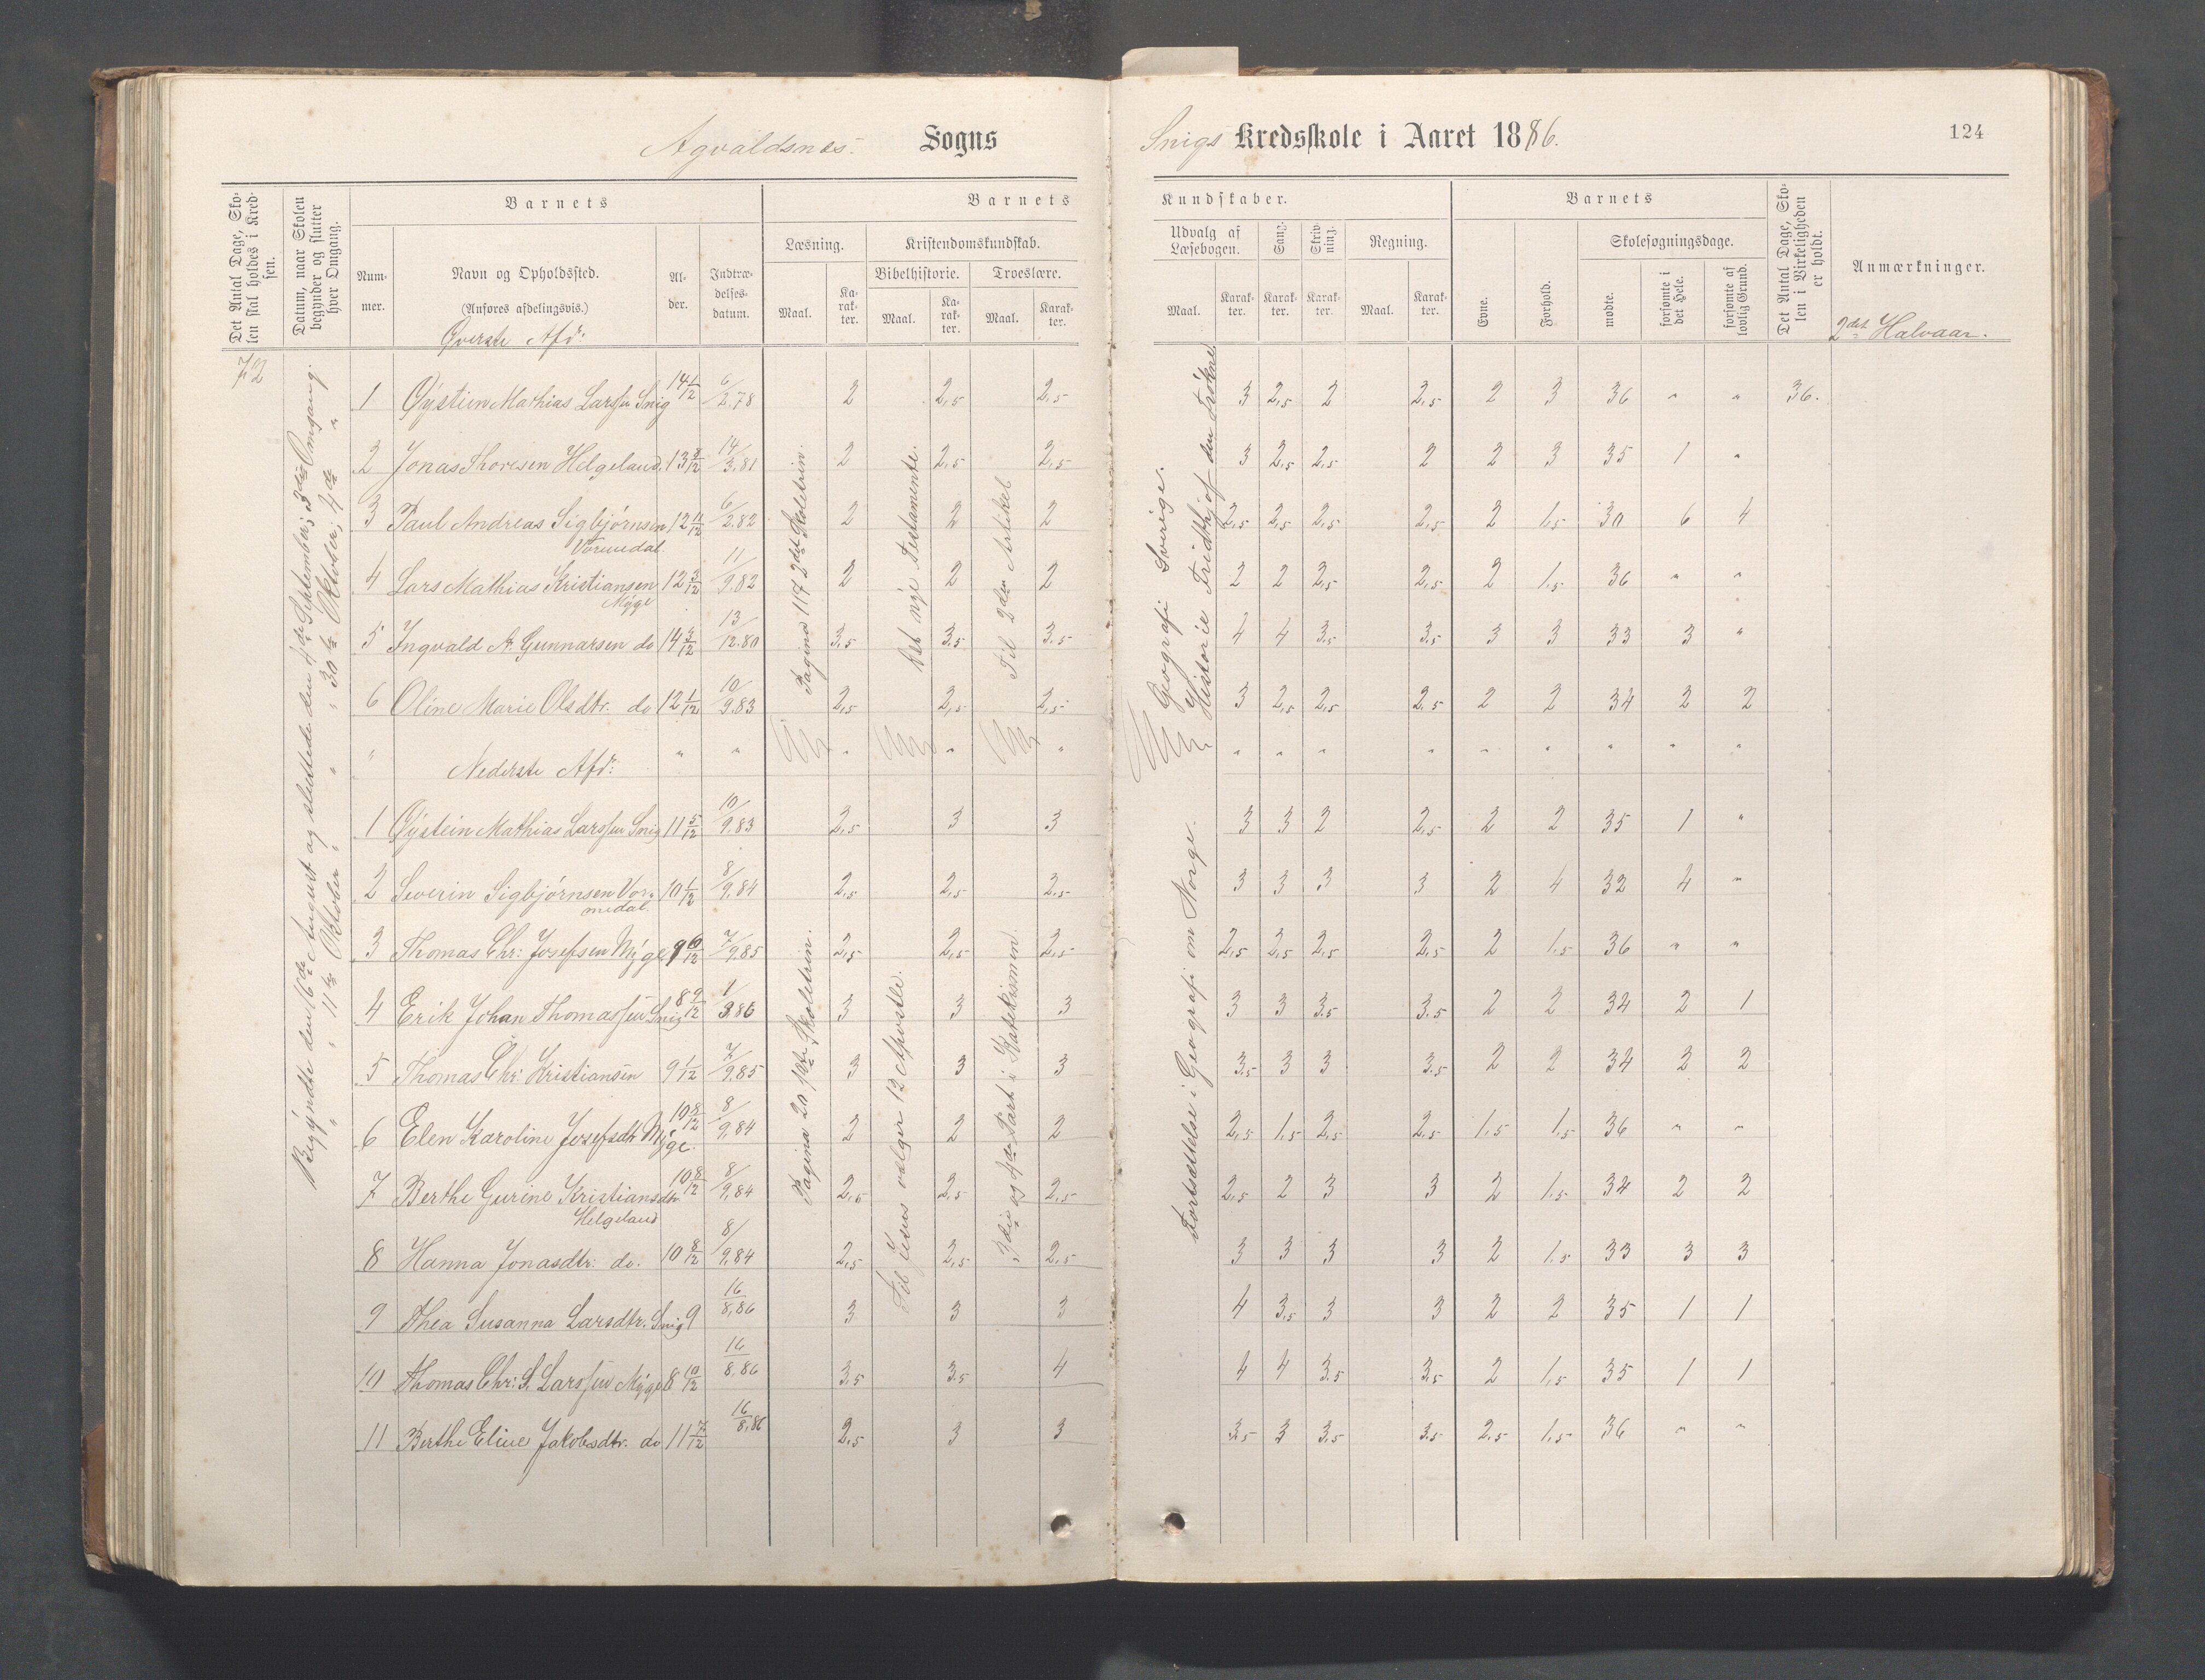 Agvaldsnes. Sogns
Snigs Kredsskole i Aaret 1886.
124
Det Antal Dage, Skolen skal holdes i Kredsen.
Datum, naar Skolen begynder og slutter hver Omgang.
Barnets
Barnets
Kundskaber.
Barnets
Det Antal Dage, Skolen i Virkeligheden er holdt.
Anmærkninger.
Nummer.
Navn og Opholdssted.
(Anføres afdelingsvis.)
Alder.
Indtrædelsesdatum.
Læsning.
Kristendomskundskab.
Bibelhistorie.
Troeslære.
Udvalg af Læsebogen.
Sang.
Skrivning.
Regning.
Evne.
Forhold.
Skolesøgningsdage.
mødte.
forsømte i det Hele.
forsømte af lovlig Grund.
Maal. Karakter. Maal. Karakter. Maal. Karakter.
Maal. Karakter. Karakter. Karakter. Maal. Karakter.
Øverste Afd:
2det Halvaar.
72
Begyndte den 16de August og sluttede den 4de September; 3die Omgang.
" " 11te Oktober " " " 30te Oktober; 4de "
Pagina 117 2det Skoletrin.
Det nye Testamente.
Til 2den Artikel
Geografi Sverige.
Historie Fridthjof den Frökne
1 Øystein Mathias Larssen Snig 14 1/12 6/2.78 2 2,5 2,5 3 2,5 2 2,5 2 3 36 " " 36.
2 Jonas Thoresen Helgeland. 13 8/12 14/3.81 2 2,5 2,5 3 2,5 2,5 2 2 3 35 1 "
3 Paul Andreas Sigbjørnsen Vormedal. 12 11/12 6/2.82 2 2 2 2,5 2,5 2,5 2,5 2 1,5 30 6 4
4 Lars Mathias Kristiansen Myge 12 3/12 11/9.82 2 2 2 2 2 2,5 2,5 2 1,5 36 " "
5 Ingvald A. Gunnarsen do 14 3/12 13/12.80 3,5 3,5 3,5 4 4 3,5 3,5 3 3 33 3 "
6 Oline Marie Olsdtr. do 12 1/12 10/9.83 2,5 2,5 2,5 3 2,5 2,5 2,5 2 2 34 2 2
" Nederste Afd: " " " " " " " " " " " " " "
Pagina 20 1ste Skoletrin.
Til Jesus vælger 12 Apostle.
3die og 4de Part i Katekismen.
Fortsættelse i Geografi om Norge.
1 Øystein Mathias Larssen Snig 11 5/12 10/9.83 2,5 3 3 3 3 2 2,5 2 2 35 1 "
2 Severin Sigbjørnsen Vormedal. 10 1/12 8/9.84 2,5 2,5 2,5 3 3 3 3 2 4 32 4 "
3 Thomas Chr: Josefsen Myge 9 6/12 7/9.85 2,5 2,5 2,5 2,5 2,5 2,5 2,5 2 1,5 36 " "
4 Erik Johan Thomassen Snig 8 9/12 1/3.86 3 3 3 3 3 3,5 3,5 2 2 34 2 1
5 Thomas Chr: Kristiansen 9 1/12 7/9.85 3 3 3 3,5 3 3 3,5 2 2 34 2 2
6 Elen Karoline Josefsdtr Myge. 10 8/12 8/9.84 2 2 2 2,5 1,5 2,5 2,5 1,5 1,5 36 " "
7 Berthe Gurine Kristiansdtr Helgeland 10 8/12 8/9.84 2,5 2,5 2,5 2,5 2 3 3 2 1,5 34 2 2
8 Hanna Jonasdtr: do. 10 8/12 8/9.84 2,5 2,5 2,5 3 3 3 3 2 1,5 33 3 3
9 Thea Susanna Larsdtr. Snig 9 16/8.86 3 3 3 4 3,5 3 3 2 2 35 1 1
10 Thomas Chr: S. Larssen Myge 8 10/12 16/8.86 3,5 3,5 4 4 4 3,5 3,5 2 1,5 35 1 1
11 Berthe Eline Jakobsdtr. do 11 7/12 16/8.86 2,5 3 3 3,5 3 3,5 3,5 2,5 1,5 36 " "